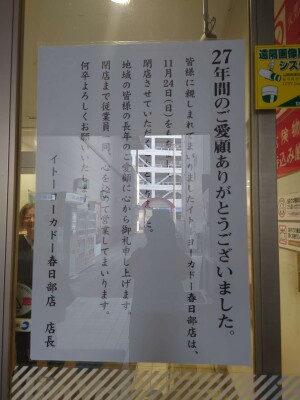 27年間のご愛顧ありがとうございました。
皆様に親しまれてまいりましたイトーヨーカドー春日部店は、
11月24日(日)をもちまして
閉店させていただきます
地域の皆様の長年のご愛顧に心から御礼申し上げます。
閉店まで従業員一同、心を込めて営業してまいります。
何卒よろしくお願いいたします。
イトーヨーカドー春日部店 店長
遠隔画像
シス